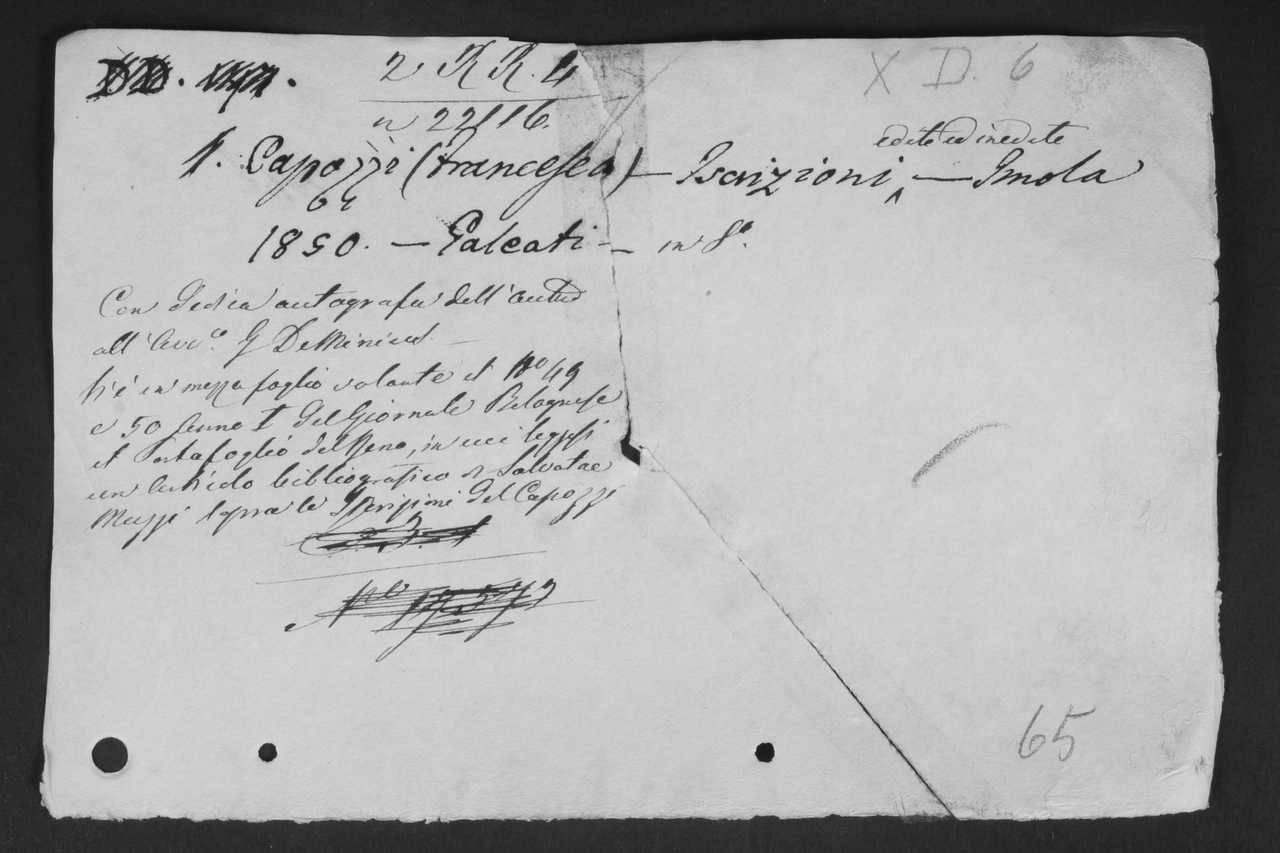 2 RR. 4
X D. 6
n 22116.
edite ed inedite
1. Capozzi (Francesco) — Iscrizioni ‸ — Imola
64
1850. — Galeati — in 8°.
Con dedica autografa dell'autore
all'Avv.co G DeMinicis. —
V'è in mezzo foglio volante il N° 49
e 50 anno I del Giornale Bolognese
il Portafoglio del Reno, in cui leggesi
un articolo bibliografico di Salvatore
Muzzi sopra le Iscrizioni del Capozzi
65